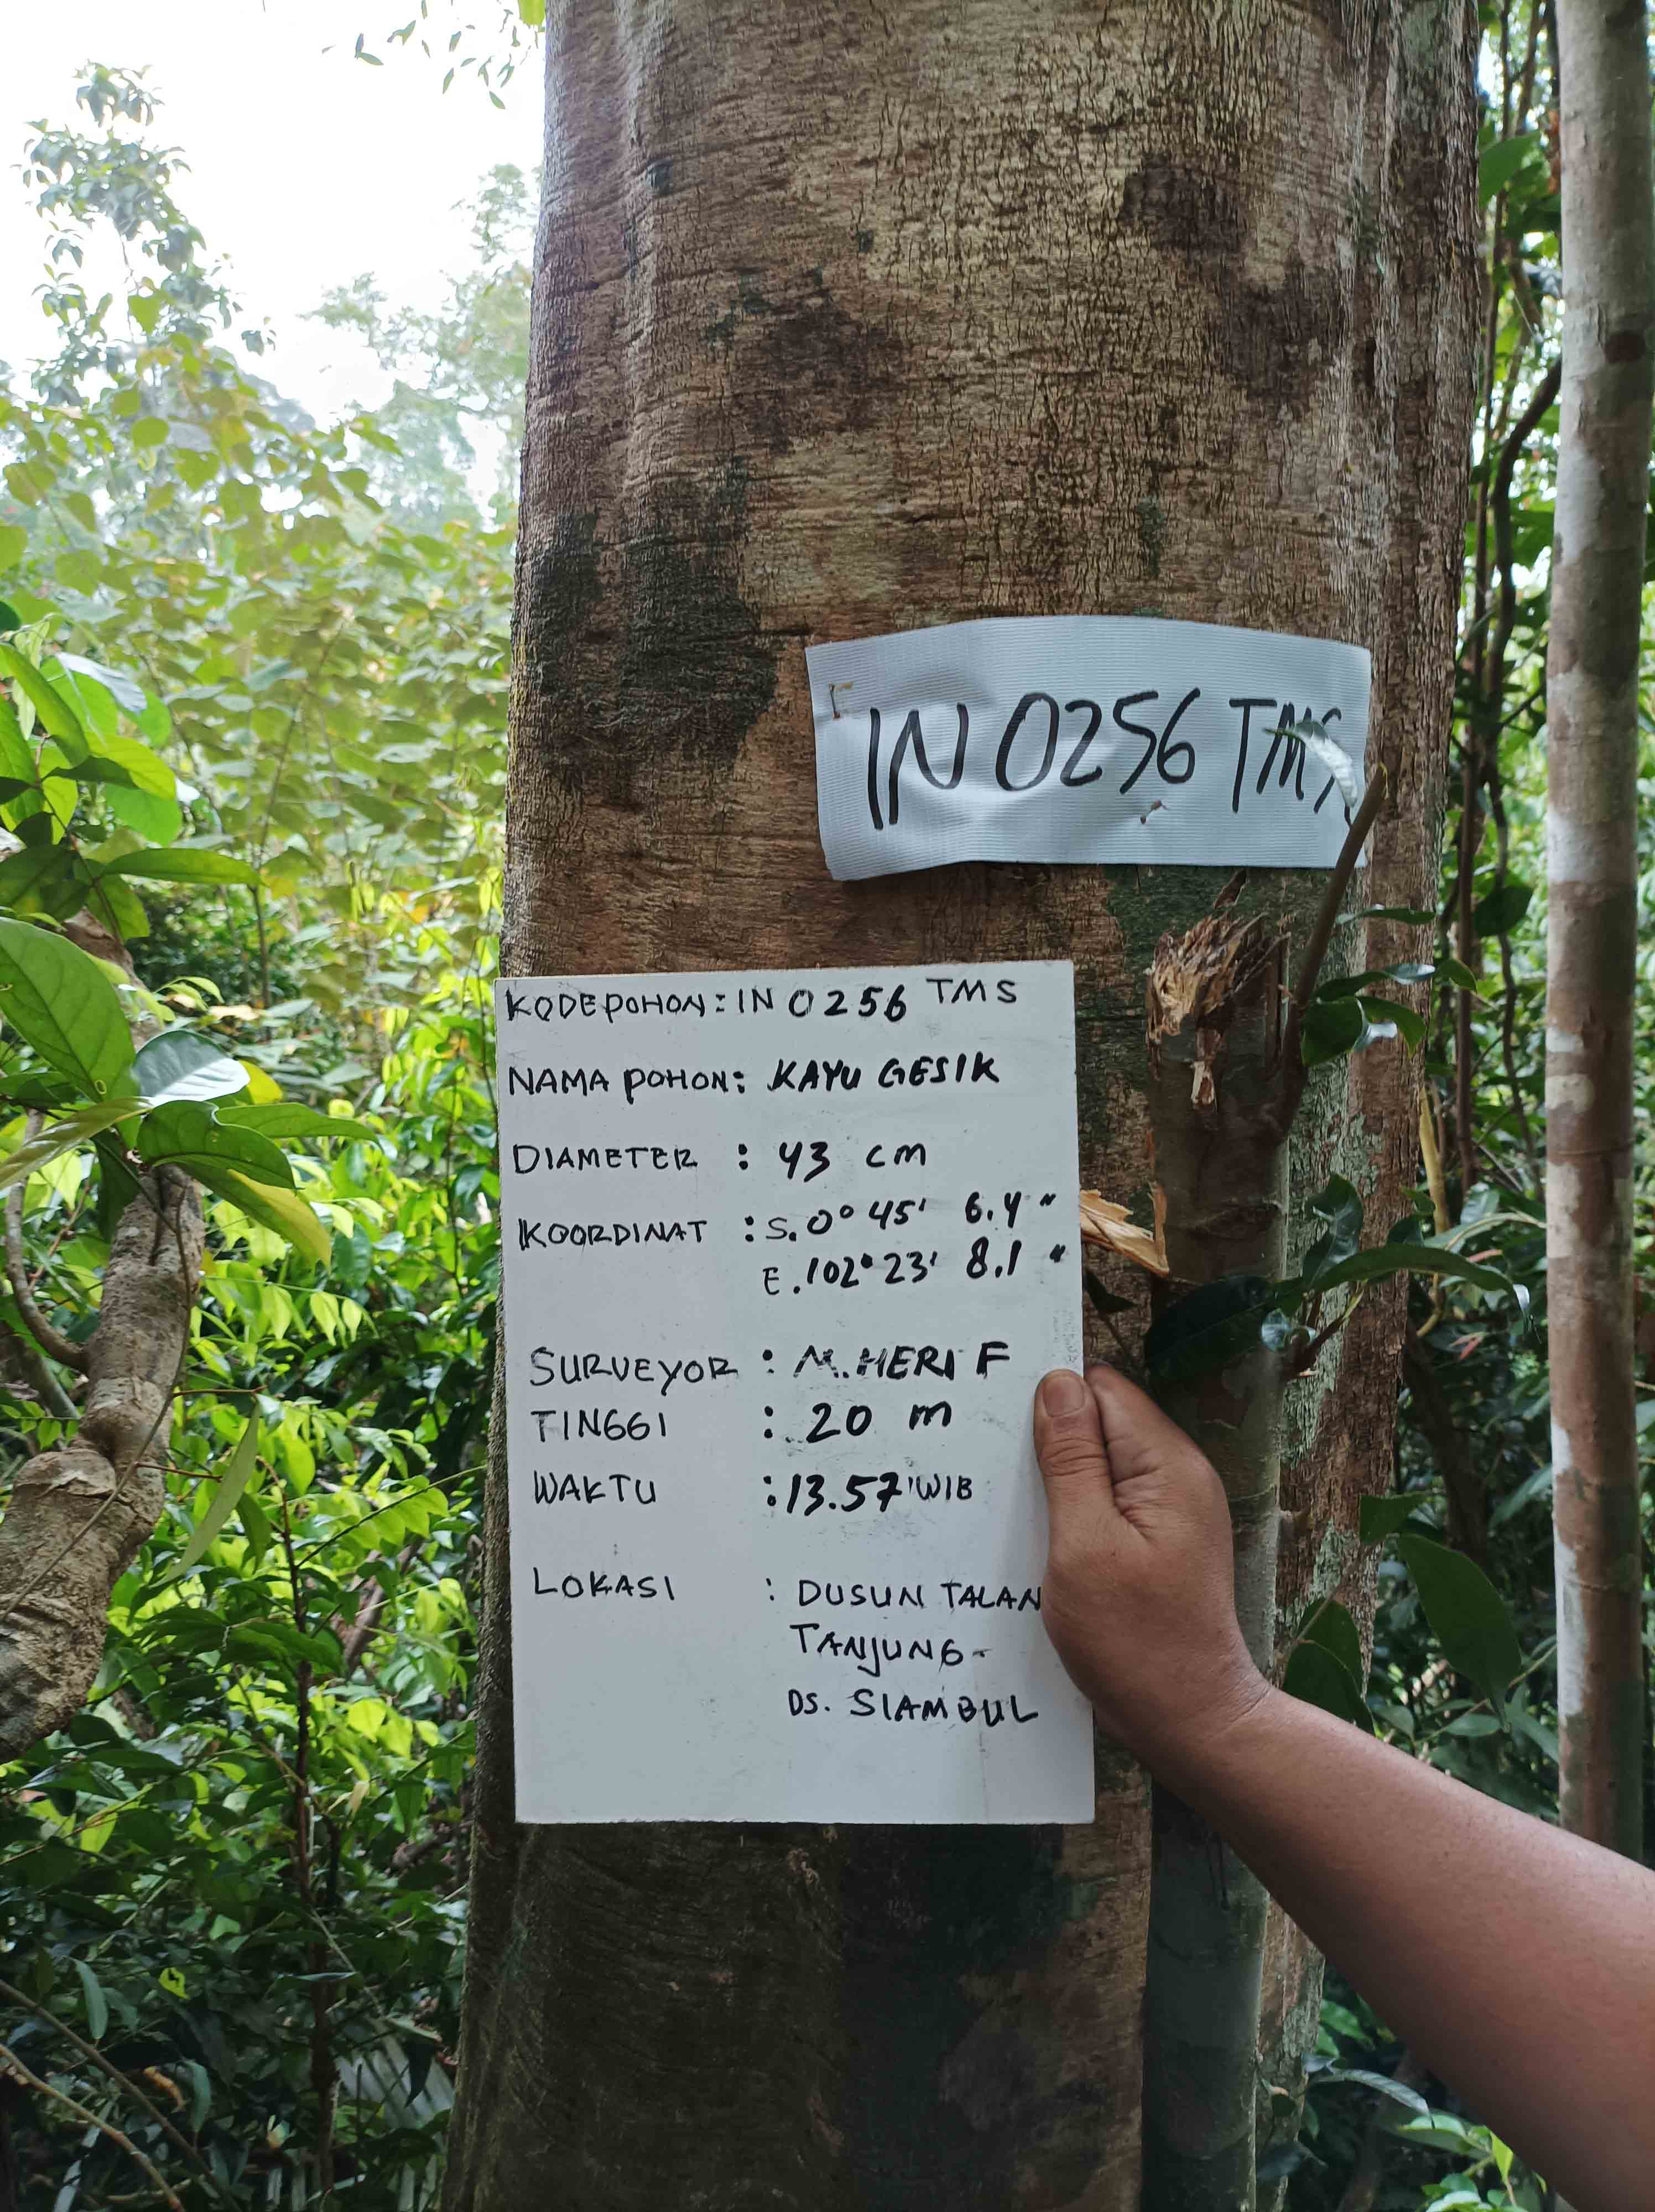 IN 0256 TMS
KODE POHON : IN 0256 TMS
NAMA POHON : KAYU GESIK
DIAMETER : 43 cm
KOORDINAT : S. 0° 45' 6.4 "
E. 102° 23' 8.1 "
SURVEYOR : M. HERI F
TINGGI : 20 m
WAKTU : 13.57 WIB
LOKASI : DUSUN TALAN
TANJUNG -
DS. SIAMBUL